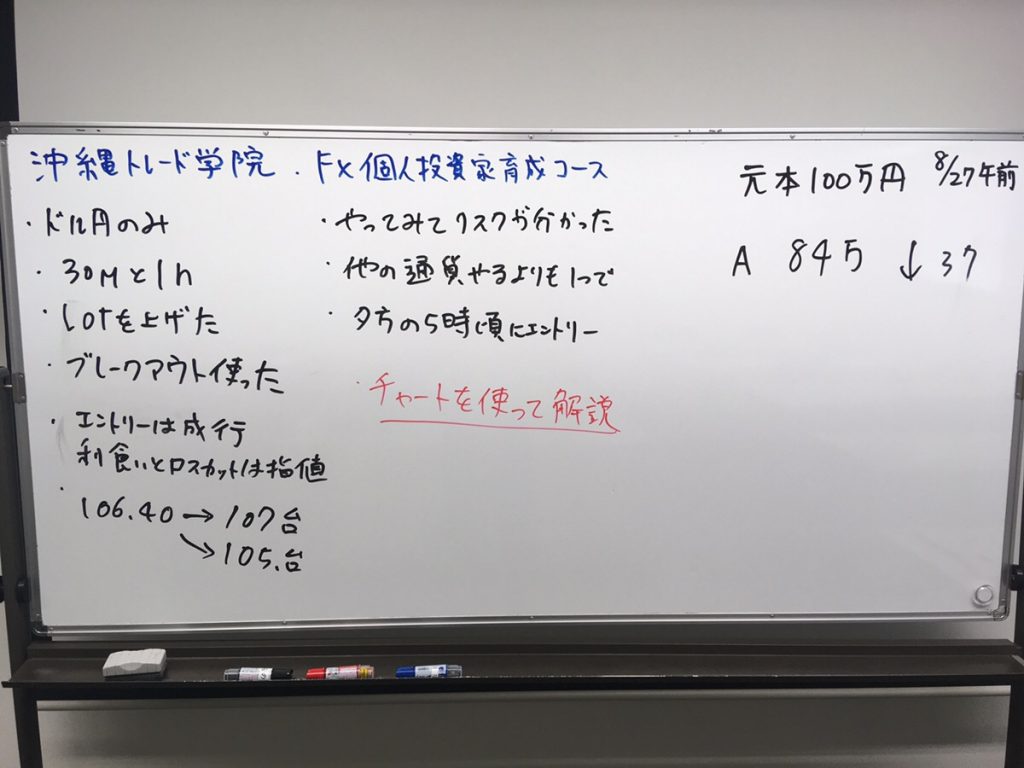 沖縄トレード学院 . FX個人投資家育成コース
・ドル円のみ
・30Mと1h
・Lotを上げた
・ブレークアウト使った
・エントリーは成行
利食いとロスカットは指値
・106.40→107台
↘105.台
・やってみてリスクが分かった
・他の通貨やるよりも1つで
・夕方の5時頃にエントリー
・チャートを使って解説
元本100万円 8/27午前
A 845 ↓37